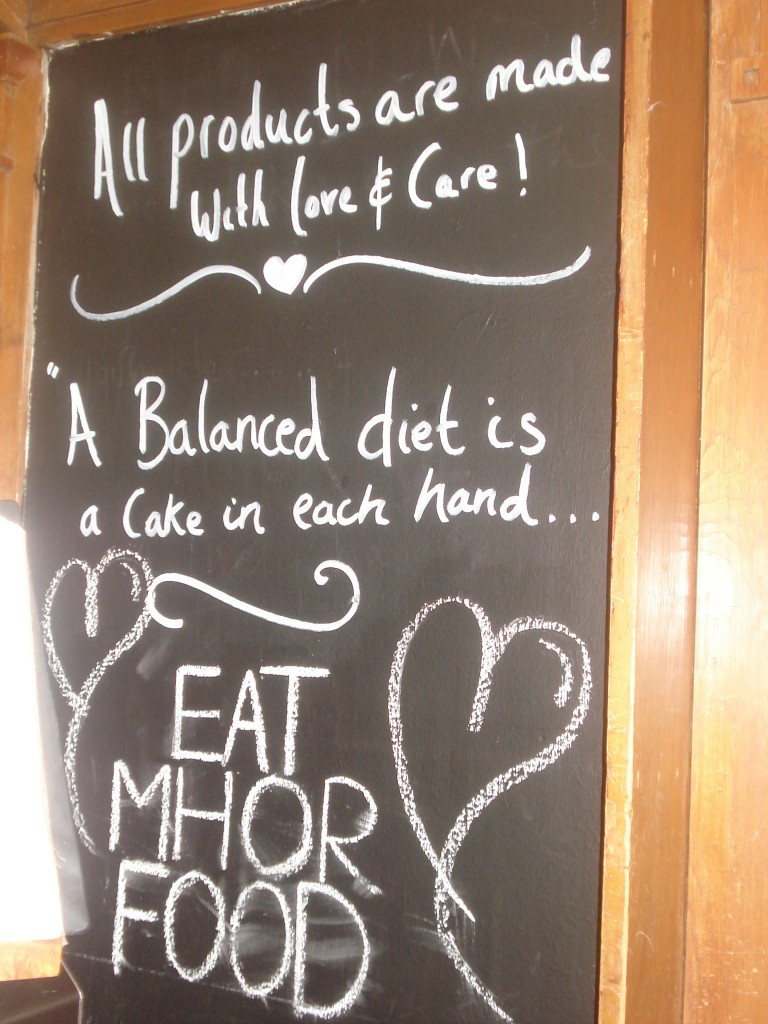 All products are made
With Love & Care!
"A Balanced diet is
a Cake in each hand...
EAT
MHOR
FOOD